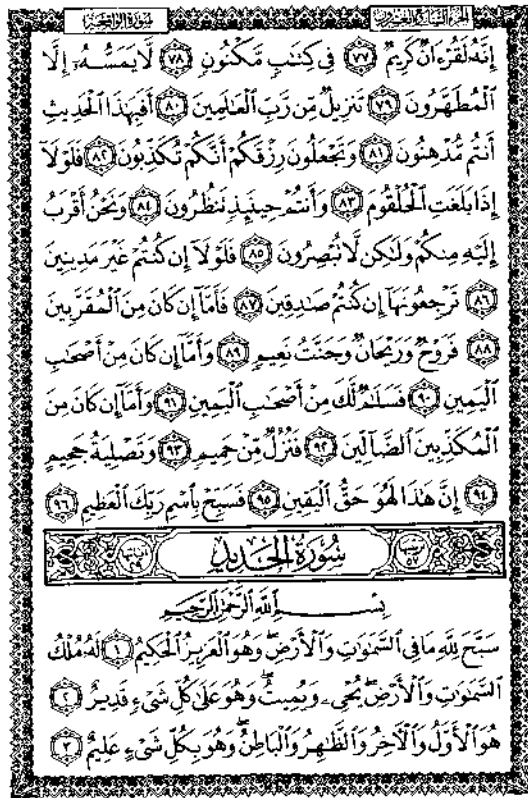 سورة الواقعة
الجزء السابع والعشرون
إِنَّهُ لَقُرْءَانٌ كَرِيمٌ ٧٧ فِي كِتَٰبٍ مَّكْنُونٍ ٧٨ لَّا يَمَسُّهُۥٓ إِلَّا
ٱلْمُطَهَّرُونَ ٧٩ تَنزِيلٌ مِّن رَّبِّ ٱلْعَٰلَمِينَ ٨٠ أَفَبِهَٰذَا ٱلْحَدِيثِ
أَنتُم مُّدْهِنُونَ ٨١ وَتَجْعَلُونَ رِزْقَكُمْ أَنَّكُمْ تُكَذِّبُونَ ٨٢ فَلَوْلَآ
إِذَا بَلَغَتِ ٱلْحُلْقُومَ ٨٣ وَأَنتُمْ حِينَئِذٍ تَنظُرُونَ ٨٤ وَنَحْنُ أَقْرَبُ
إِلَيْهِ مِنكُمْ وَلَٰكِن لَّا تُبْصِرُونَ ٨٥ فَلَوْلَآ إِن كُنتُمْ غَيْرَ مَدِينِينَ
٨٦ تَرْجِعُونَهَآ إِن كُنتُمْ صَٰدِقِينَ ٨٧ فَأَمَّآ إِن كَانَ مِنَ ٱلْمُقَرَّبِينَ
٨٨ فَرَوْحٌ وَرَيْحَانٌ وَجَنَّتُ نَعِيمٍ ٨٩ وَأَمَّآ إِن كَانَ مِنْ أَصْحَٰبِ
ٱلْيَمِينِ ٩٠ فَسَلَٰمٌ لَّكَ مِنْ أَصْحَٰبِ ٱلْيَمِينِ ٩١ وَأَمَّآ إِن كَانَ مِنَ
ٱلْمُكَذِّبِينَ ٱلضَّآلِّينَ ٩٢ فَنُزُلٌ مِّنْ حَمِيمٍ ٩٣ وَتَصْلِيَةُ جَحِيمٍ
٩٤ إِنَّ هَٰذَا لَهُوَ حَقُّ ٱلْيَقِينِ ٩٥ فَسَبِّحْ بِٱسْمِ رَبِّكَ ٱلْعَظِيمِ ٩٦
ترتيبها ٥٧ سُورَةُ الحَدِيدِ آياتها ٢٩
بِسْمِ ٱللَّهِ ٱلرَّحْمَٰنِ ٱلرَّحِيمِ
سَبَّحَ لِلَّهِ مَا فِي ٱلسَّمَٰوَٰتِ وَٱلْأَرْضِ ۖ وَهُوَ ٱلْعَزِيزُ ٱلْحَكِيمُ ١ لَهُۥ مُلْكُ
ٱلسَّمَٰوَٰتِ وَٱلْأَرْضِ ۖ يُحْىِۦ وَيُمِيتُ ۖ وَهُوَ عَلَىٰ كُلِّ شَىْءٍ قَدِيرٌ ٢
هُوَ ٱلْأَوَّلُ وَٱلْءَاخِرُ وَٱلظَّٰهِرُ وَٱلْبَاطِنُ ۖ وَهُوَ بِكُلِّ شَىْءٍ عَلِيمٌ ٣